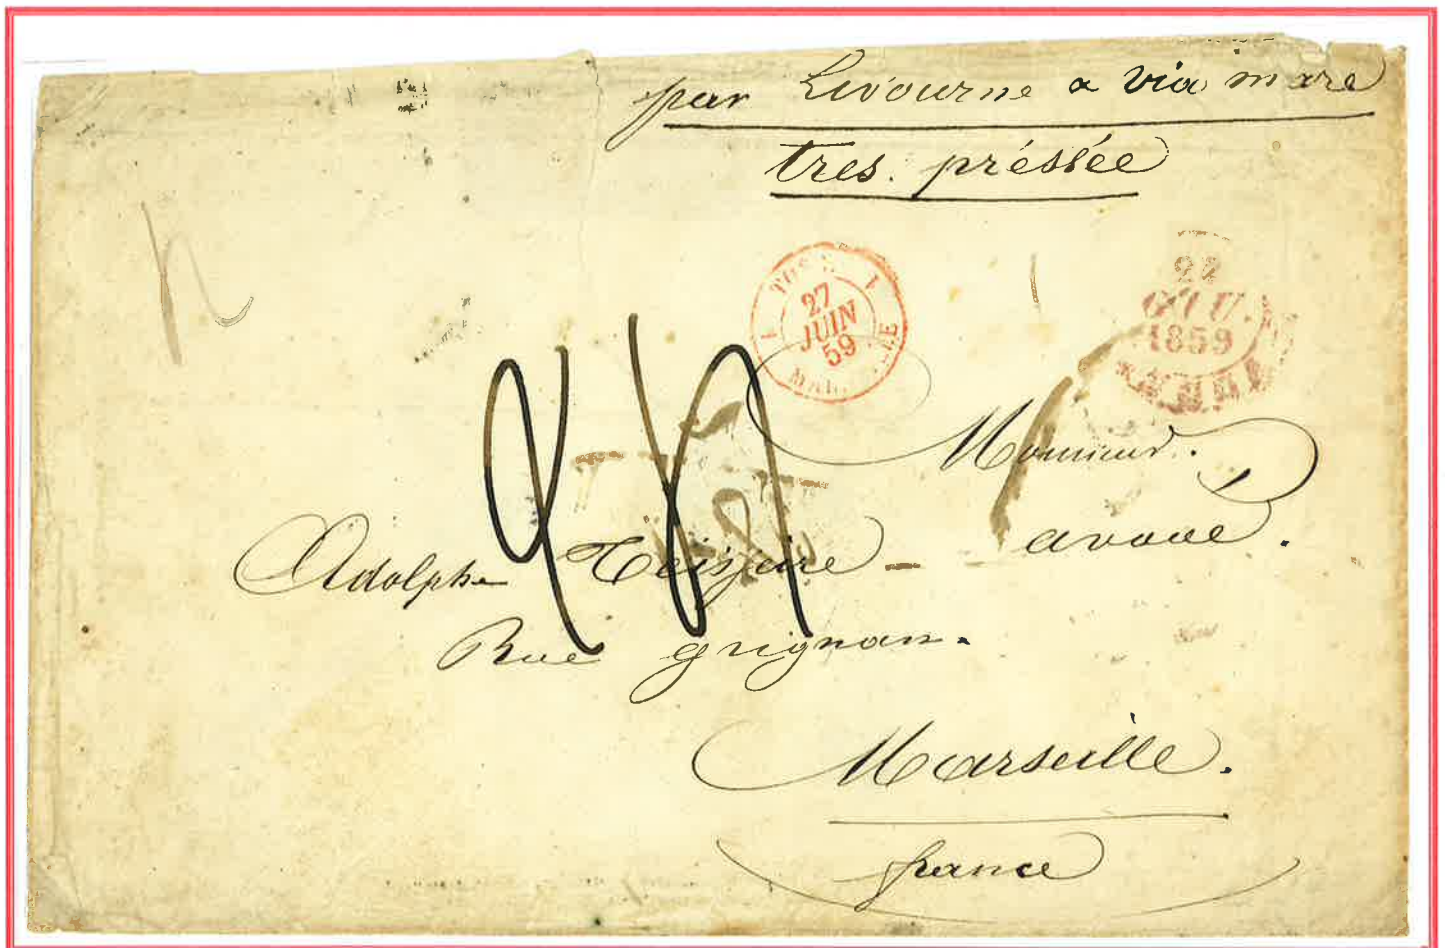 par Livourne a via mare
tres. préssée
TOSC.
27
JUIN
59
MAR
GIU.
1859
Monsieur.
Adolphe Teisseire avoué.
Rue grignan.
Marseille.
france